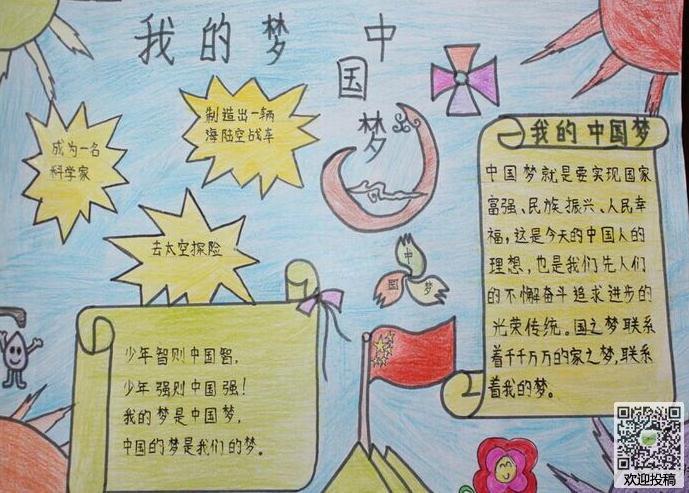 我的梦 中国梦
成为一名
科学家
制造出一辆
海陆空战车
去太空探险
中国梦
我的中国梦
中国梦就是要实现国家
富强、民族振兴、人民幸
福,这是今天的中国人的
理想,也是我们先人们
的不懈奋斗追求进步的
光荣传统。国之梦联系
着千千万万的家之梦,联系
着我的梦。
少年智则中国智,
少年强则中国强!
我的梦是中国梦,
中国的梦是我们的梦。
欢迎投稿